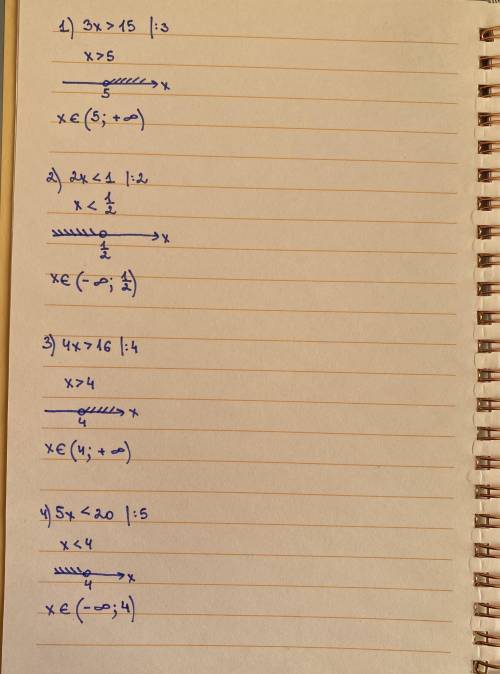 1) 3x > 15 |:3
x > 5
5 x
x ∈ (5; +∞)
2) 2x < 1 |:2
x < 1/2
1/2 x
x ∈ (-∞; 1/2)
3) 4x > 16 |:4
x > 4
4 x
x ∈ (4; +∞)
4) 5x < 20 |:5
x < 4
4 x
x ∈ (-∞; 4)